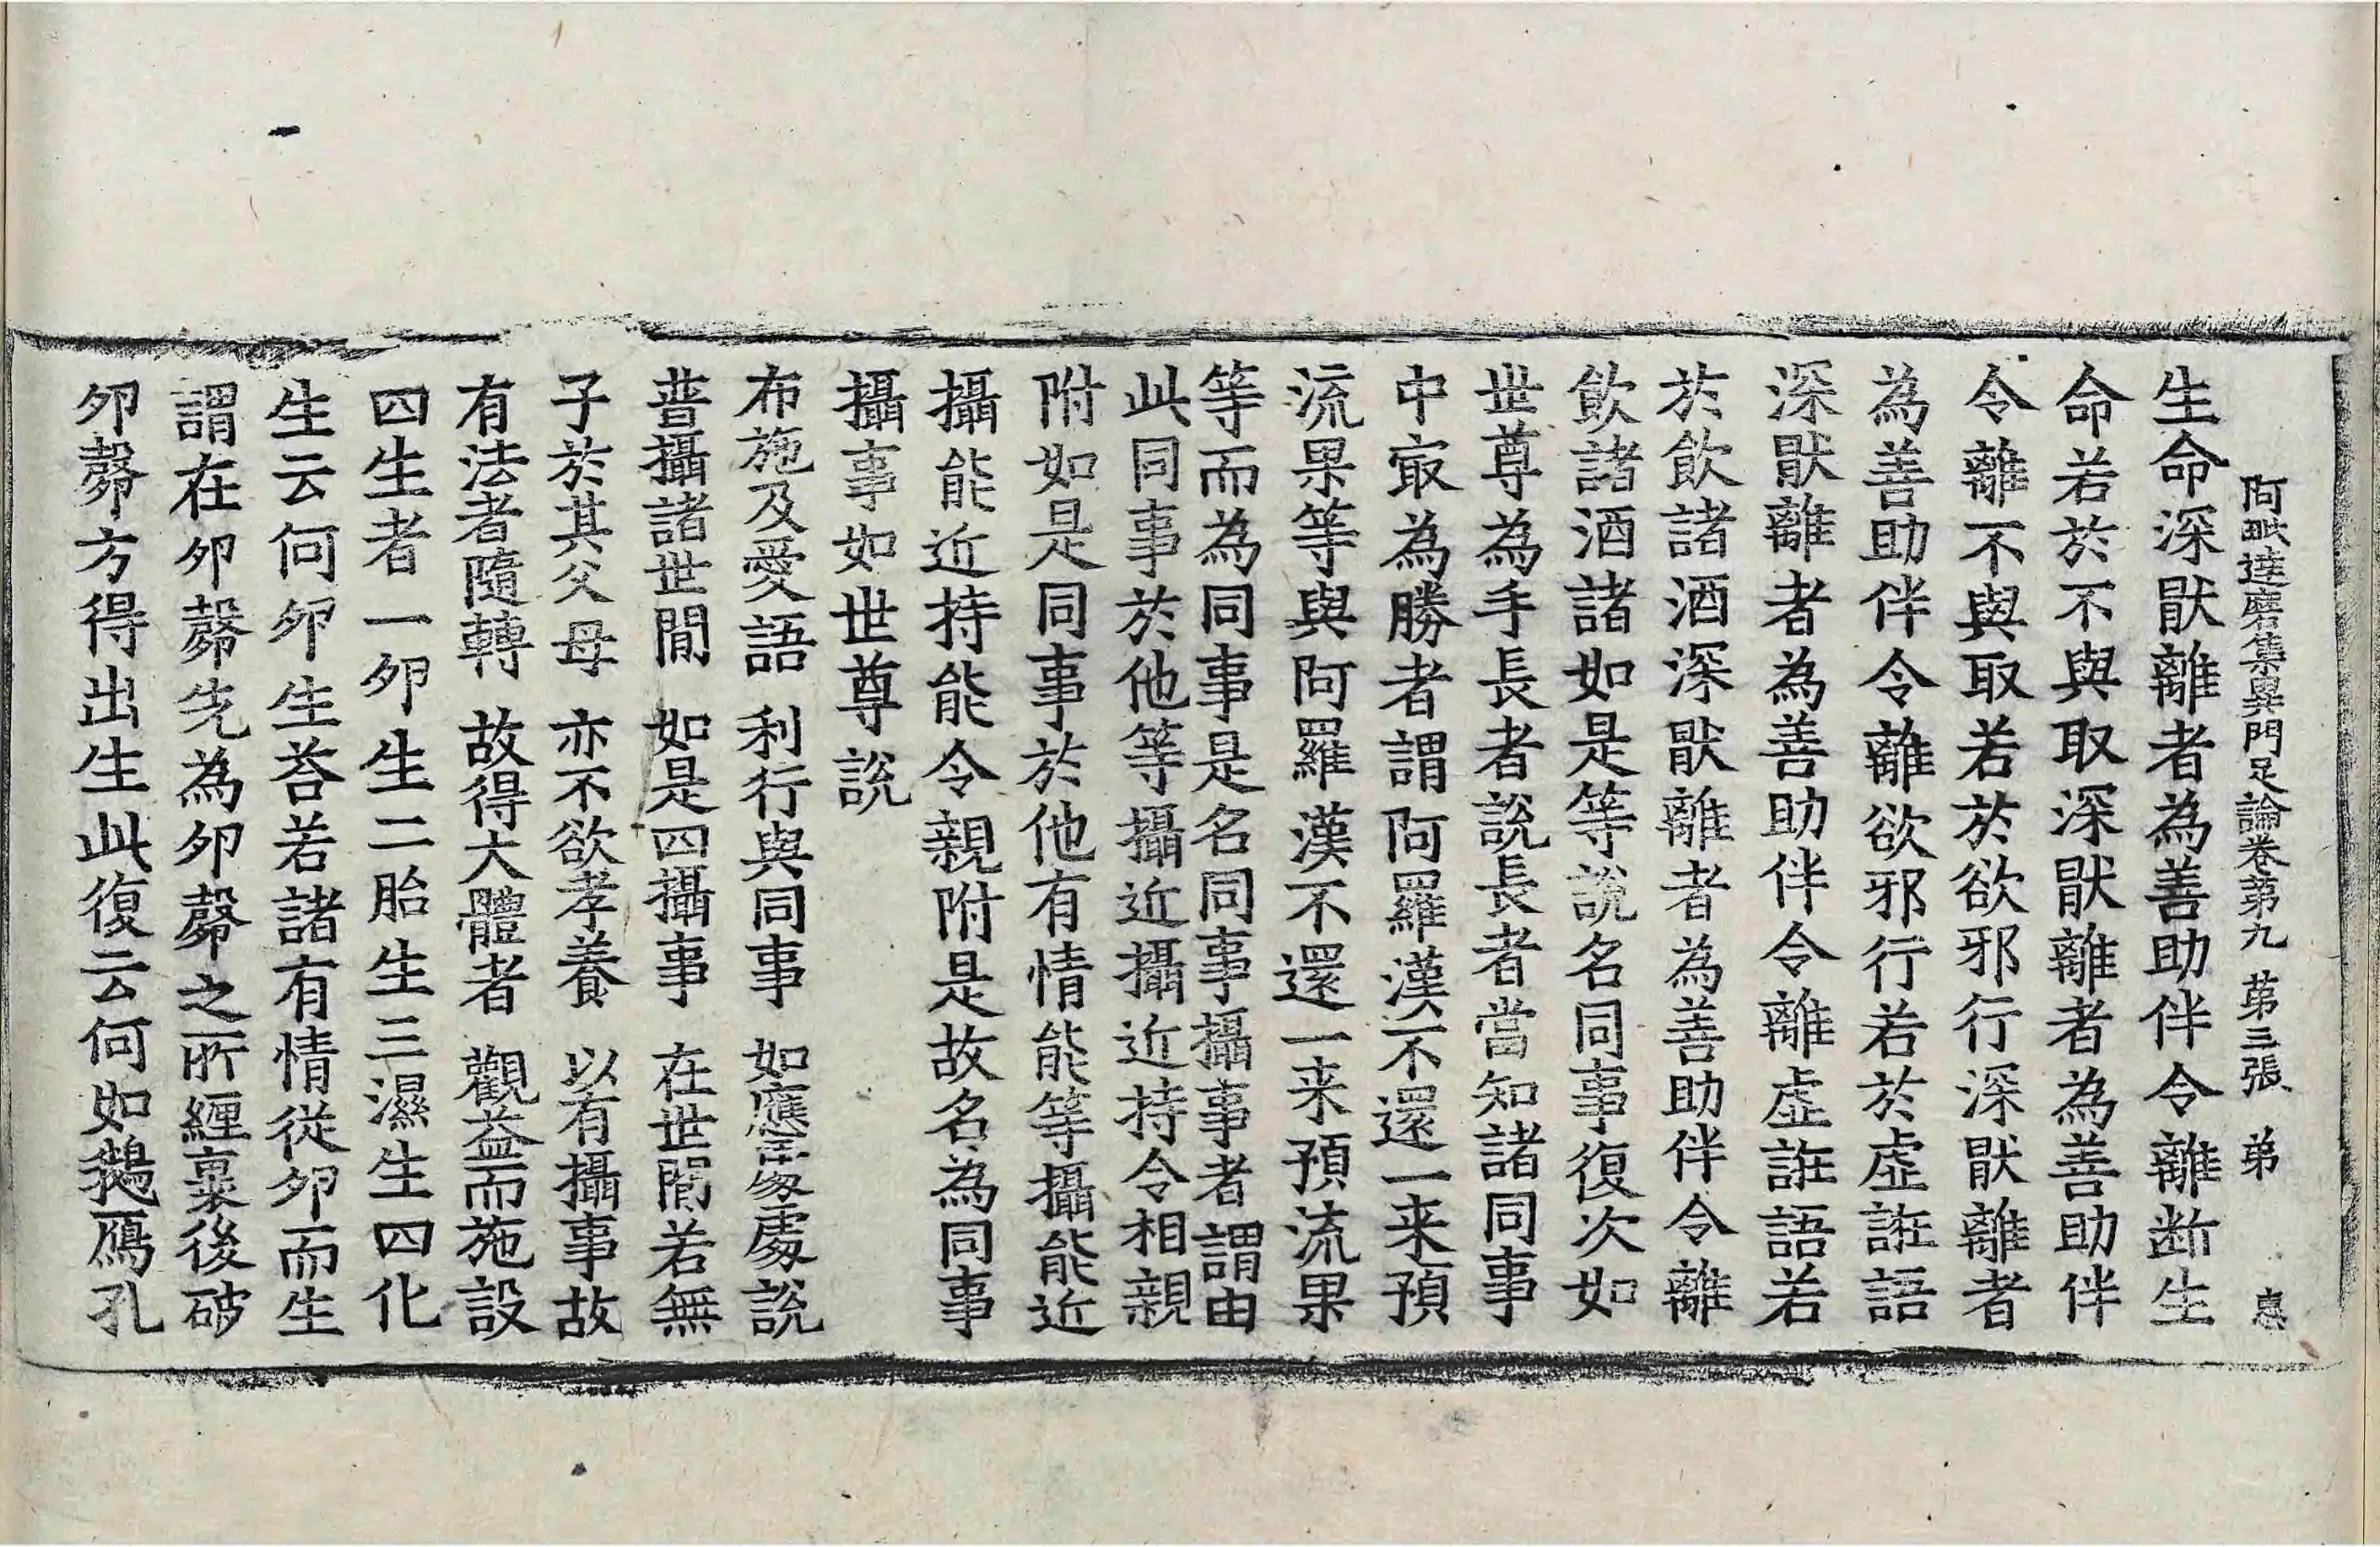 阿毗達磨集異門足論卷第九 第三張 弟
生命深猒離者為善助伴令離斷生
命若於不與取深猒離者為善助伴
令離不與取若於欲邪行深猒離者
為善助伴令離欲邪行若於虛誑語
深猒離者為善助伴令離虛誑語若
於飲諸酒深猒離者為善助伴令離
飲諸酒諸如是等說名同事復次如
世尊為手長者說長者當知諸同事
中㝡為勝者謂阿羅漢不還一来預
流果等與阿羅漢不還一来預流果
等而為同事是名同事攝事者謂由
此同事於他等攝近攝近持令相親
附如是同事於他有情能等攝能近
攝能近持能令親附是故名為同事
攝事如世尊說
布施及愛語 利行與同事 如應處處說
普攝諸世間 如是四攝事 在世間若無
子於其父母 亦不欲孝養 以有攝事故
有法者隨轉 故得大體者 觀益而施設
四生者一卵生二胎生三濕生四化
生云何卵生荅若諸有情從卵而生
謂在卵㲉先為卵㲉之所纏裹後破
卵㲉方得出生此復云何如鵝鴈孔